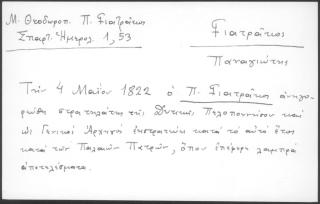 Μ. Θεοδωροπ. Π. Γιατράκος
Σπαρτ. Ἡμερολ. 1, 53
Γιατράκος
Παναγιώτης
Τήν 4 Μαΐου 1822 ὁ Π. Γιατράκος ἀνηγο-
ρεύθη στρατηλάτης τῆς Δυτικῆς Πελοποννήσου καί
ὡς Γενικός Ἀρχηγός ἐκστρατεύει κατά τό αὐτό ἔτος
κατά τῶν Παλαιῶν Πατρῶν, ὅπου ἐπέφερε λαμπρά
ἀποτελέσματα.